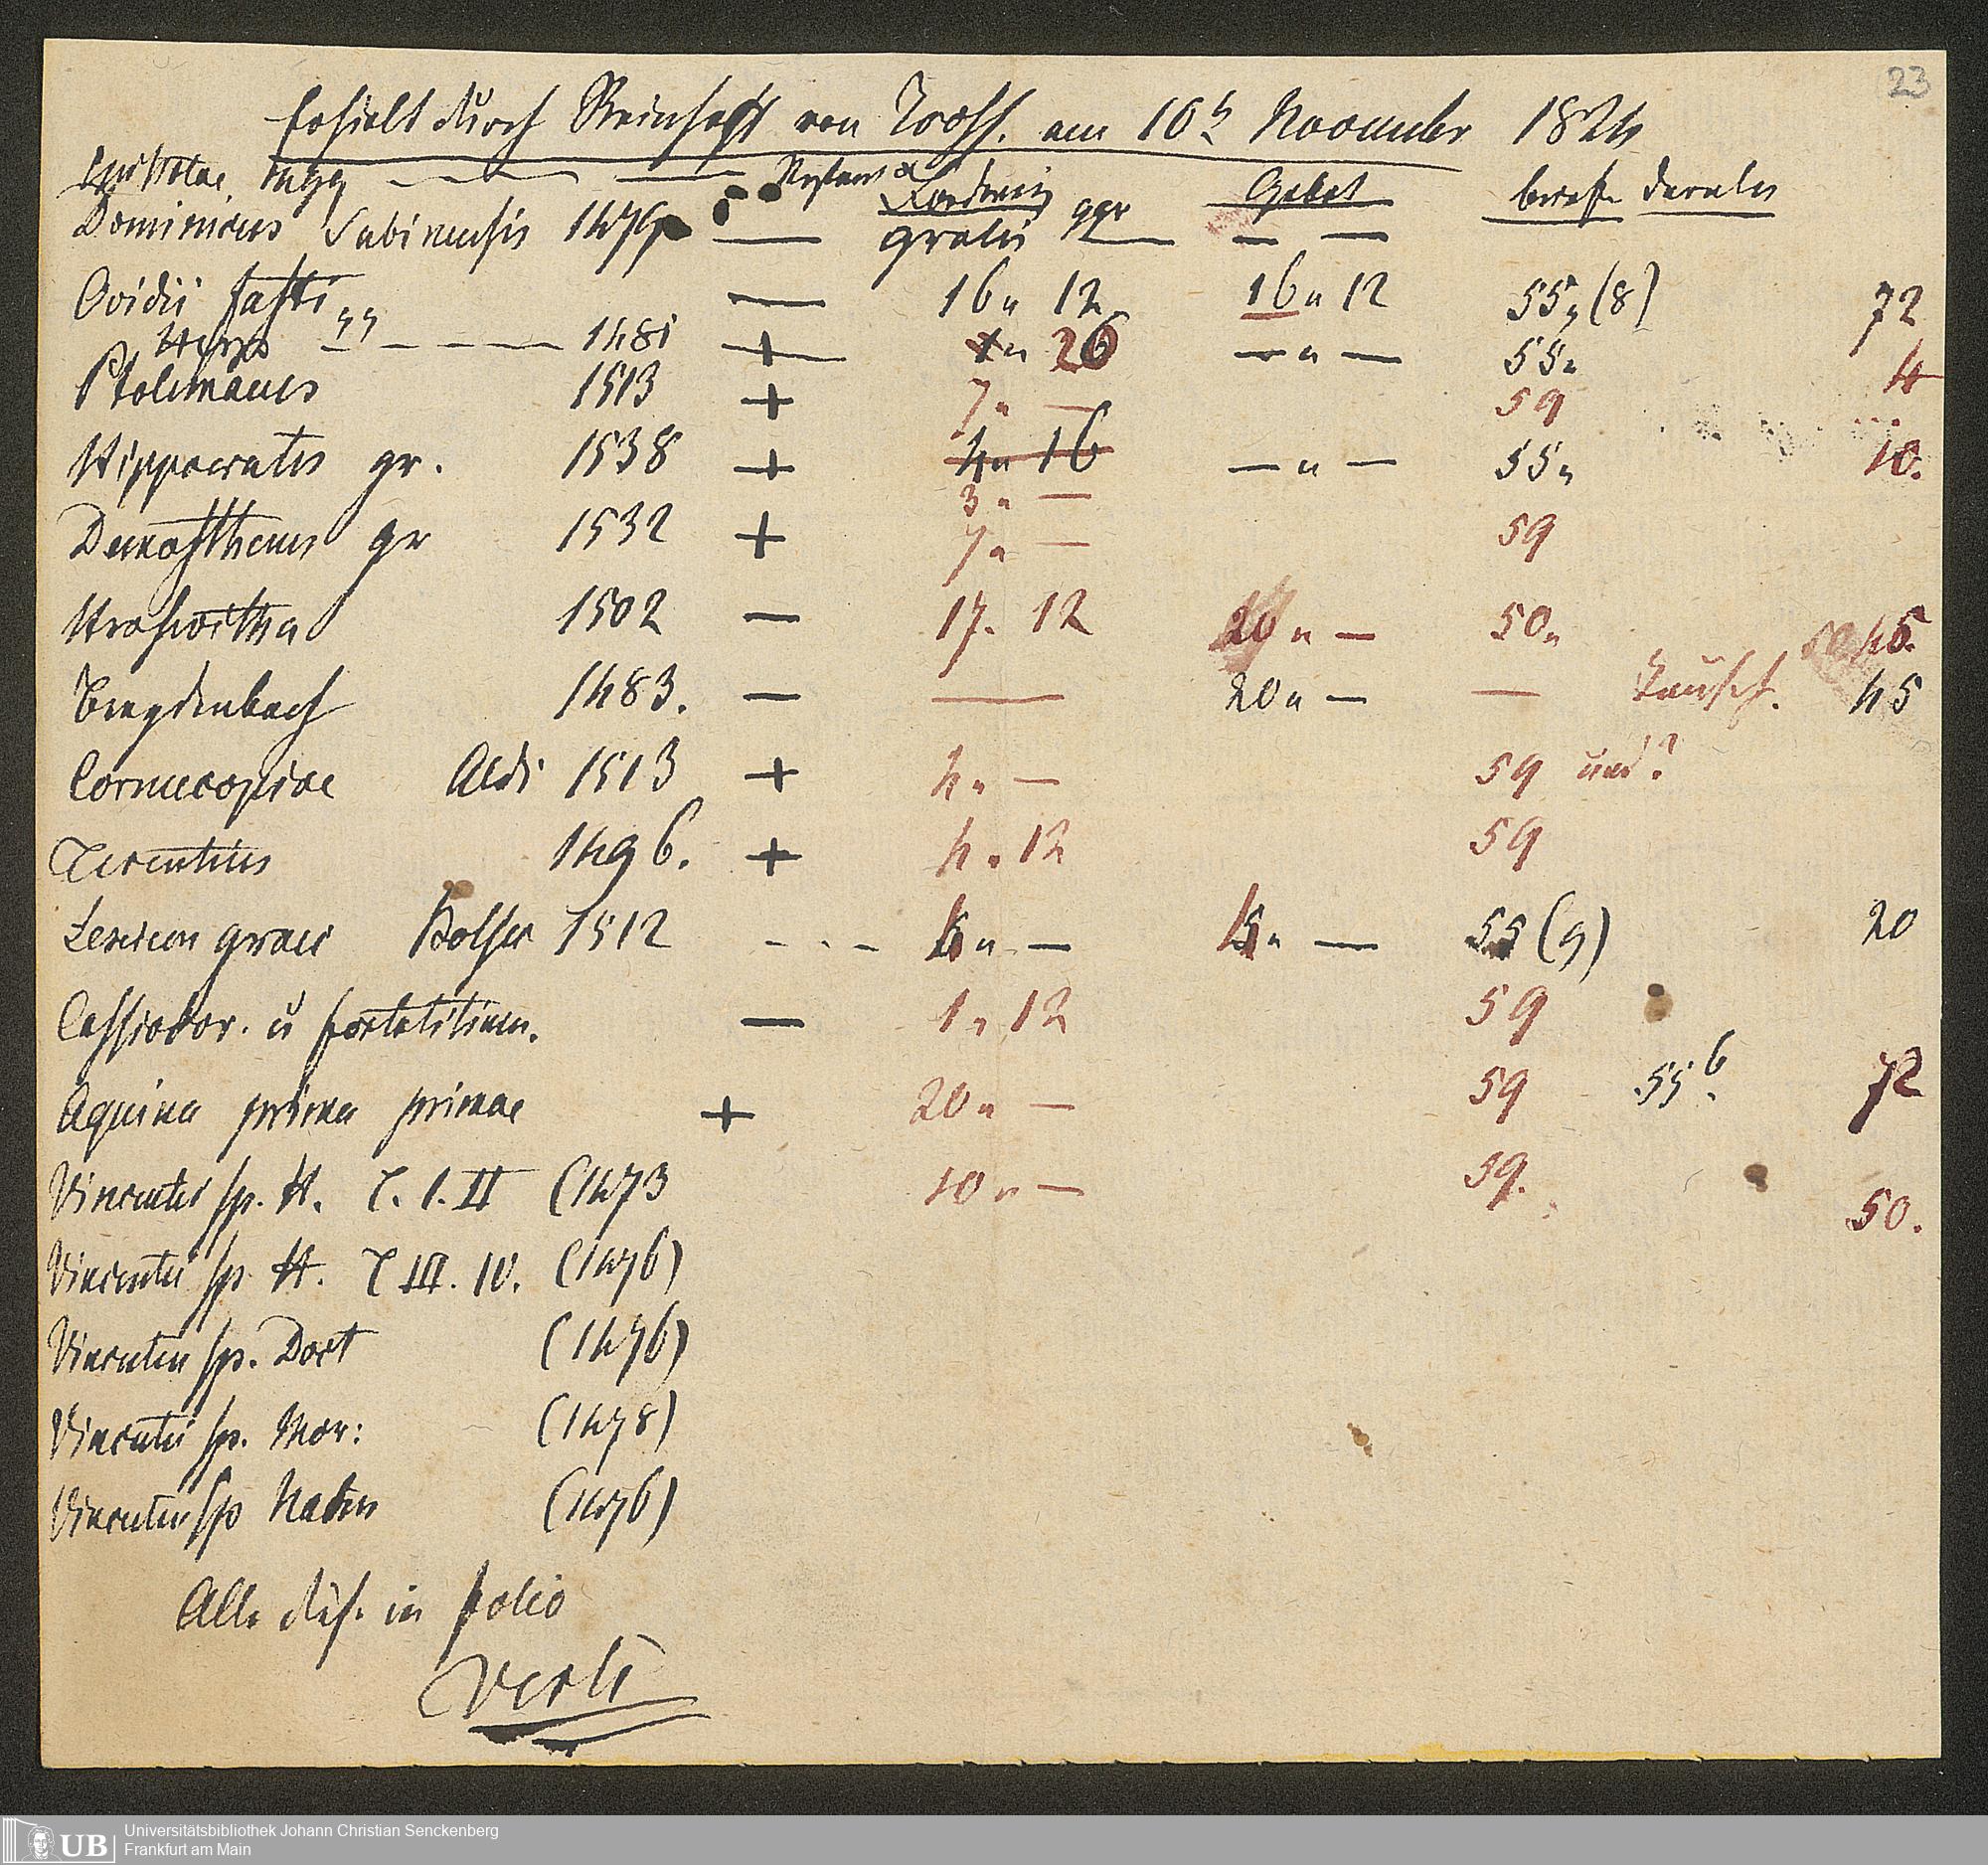 23
Erhielt durch Reinhart von Tross. am 10t November 1824
Epistolae
Dominicus Sabinensis 1474 — gratis ggr — —
Gebot
Ovidii fasti „ — 16 „ 12 16 „ 12 55 „ (8) 72
1481 + 26 — „ — 55 „ 4
Ptolemaeus 1513 + 7 „ — 59
Hippocratis gr. 1538 + 4 „ 16 — „ — 55 „ 10.
3 „ —
Demosthenes gr 1532 + 7 „ — 59
Hroswitha 1502 — 17. 12 20 „ — 50 „ 45.
Breydenbach 1483. — — 20 „ — — Tausch. 45
Cornucopiae Aldi 1513 + 4 „ — 59 und?
Terentius 1496. + 4 „ 12 59
Lexicon graec 1512 - - - 5 „ — 5 „ — 55 (9) 20
Cassiodor. u fortalitium. — 1 „ 12 59
Aquina prima primae + 20 „ — 59 55 6. 72
Vincentii sp. H. T. I. II (1473 10 „ — 59. 50.
Vincentii sp. H. T III. IV. (1476)
Vincentii sp. Doct (1476)
Vincentii sp. Mor: (1478)
Vincentii sp Natur (1476)
Alle dies. in folio
verte
UB
Universitätsbibliothek Johann Christian Senckenberg
Frankfurt am Main